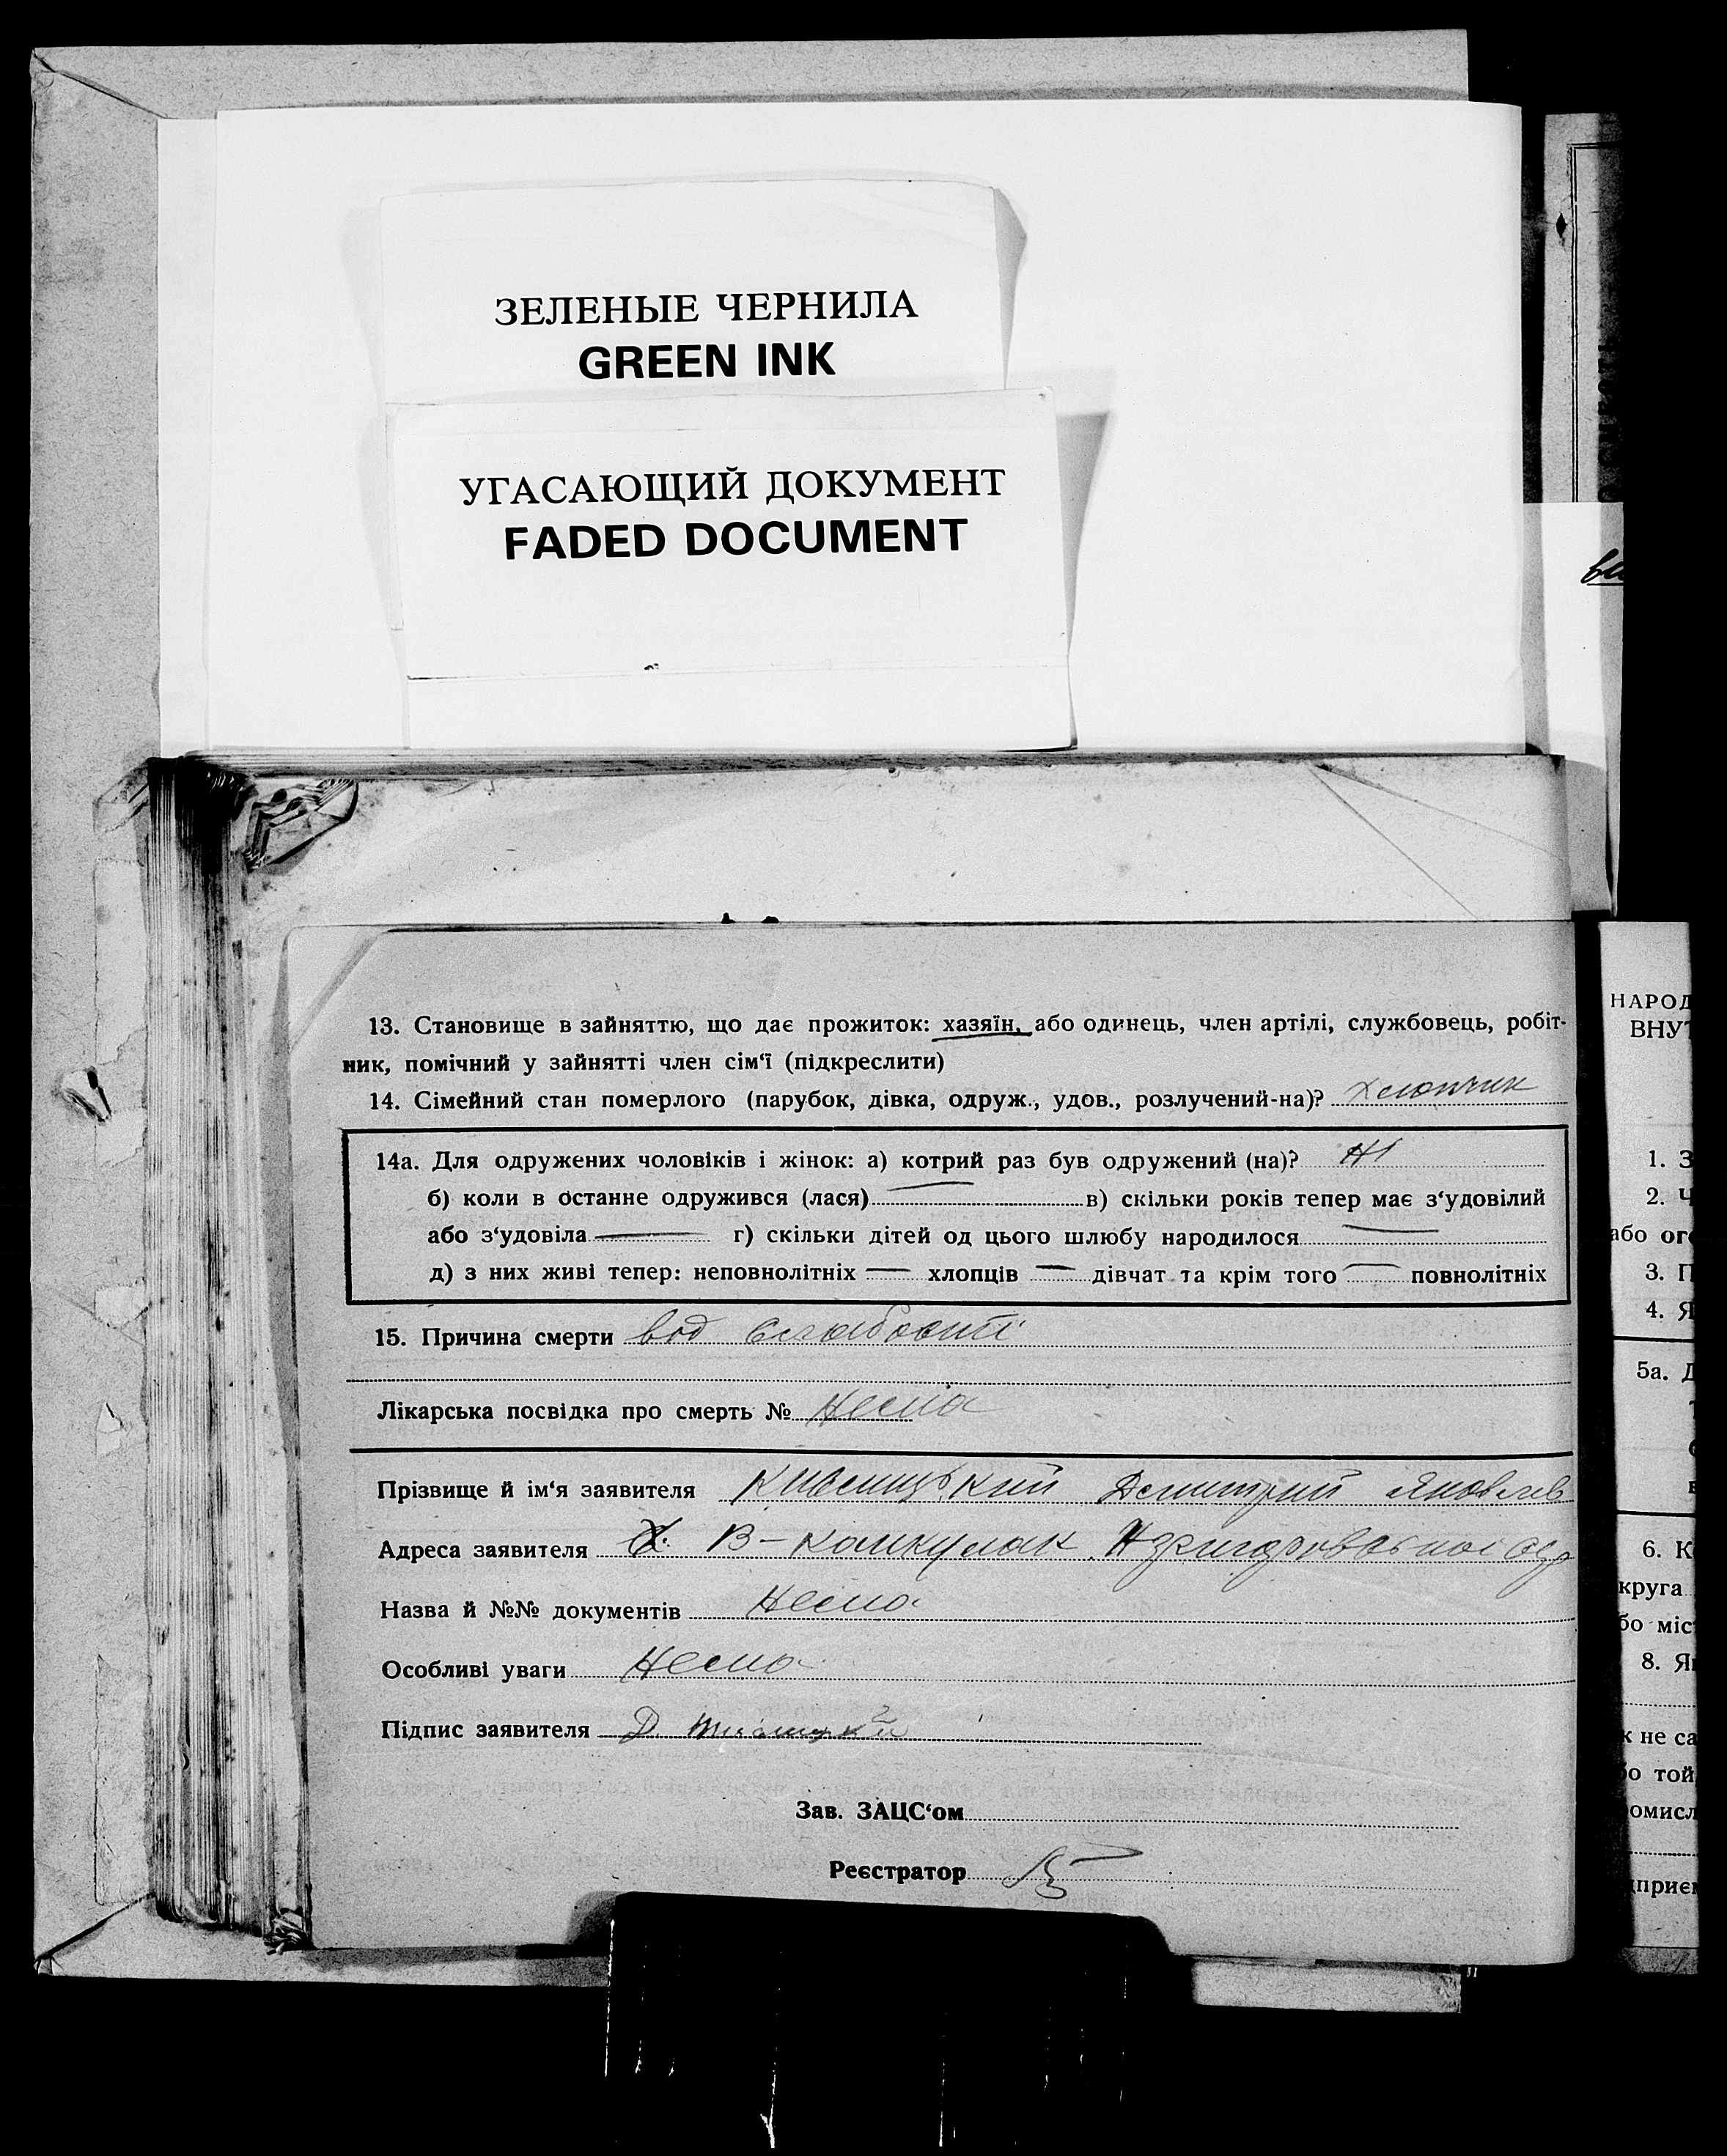 ЗЕЛЕНЫЕ ЧЕРНИЛА
GREEN INK
УГАСАЮЩИЙ ДОКУМЕНТ
FADED DOCUMENT
13. Становище в зайняттю, що дає прожиток: хазяїн, або одинець, член артілі, службовець, робіт-
ник, помічний у зайнятті член сім‘ї (підкреслити)
14. Сімейний стан померлого (парубок, дівка, одруж., удов., розлучений-на)? Хлопчик
14а. Для одружених чоловіків і жінок: а) котрий раз був одружений (на)? Ні
б) коли в останне одружився (лася) — в) скільки років тепер має з‘удовілий
або з‘удовіла — г) скільки дітей од цього шлюбу народилося —
д) з них живі тепер: неповнолітніх — хлопців — дівчат та крім того — повнолітніх
15. Причина смерти вод слабости
Лікарська посвідка про смерть № Нема
Прізвище й ім‘я заявителя Дмитрий Яковлев
Адреса заявителя В-
Назва й №№ документів Нема
Особливі уваги Нема
Підпис заявителя Д.
Зав. ЗАЦС‘ом
Реєстратор
НАРОД
ВНУТ
1. З
2. Ч
або ого
3. П
4. Я
5а. Д
6. К
круга
бо міс
8. Я
к не са
бо той
омисл
дприєм